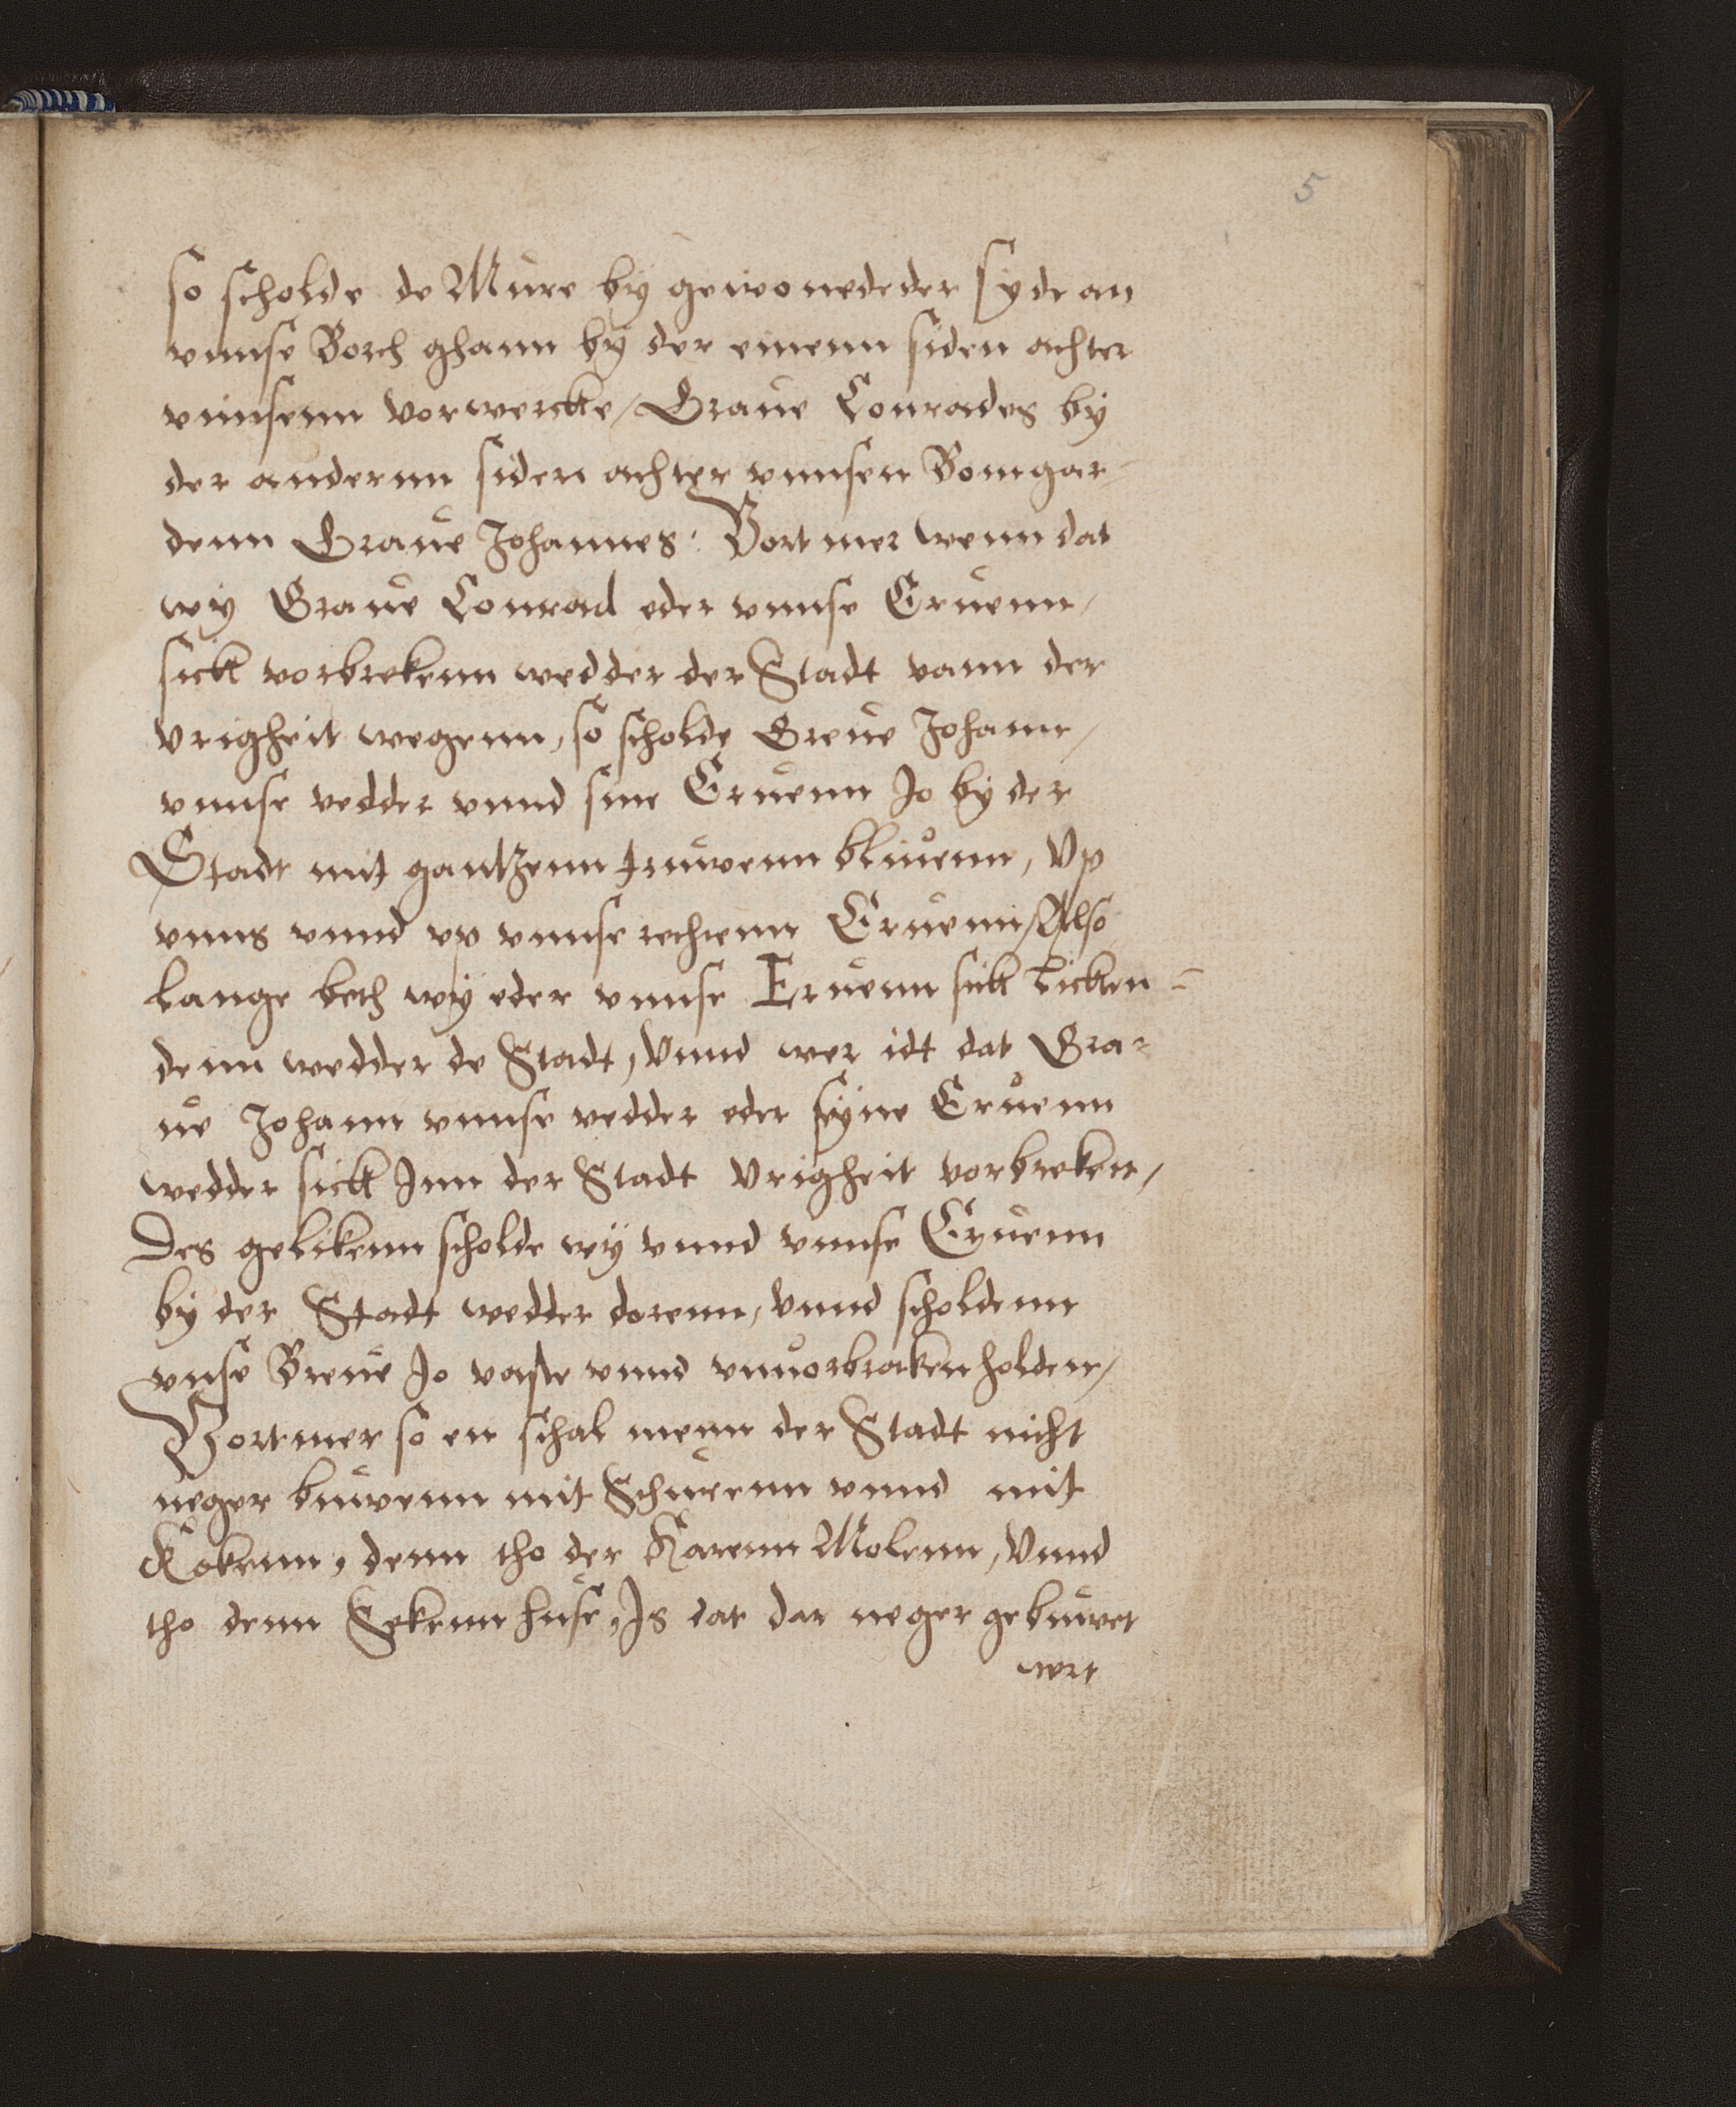 5
so scholde de Mure by gewonededer syde an
vnnse Borch ghann by der einenn siden achter
vnnsenn vorwerckke/ Graue Conrades by
der andernn siden achter vnnsen Bomgar-
denn Graue Johannes: Vort mer wenn dat
wy Graue Conrad eder vnnse Eruenn/
sick vorbrekenn wedder der Stadt vann der
vrigheit wegenn, so scholde Greue Johann/
vnnse vedder vnnd sine Eruenn Jo by der
Stadt mit gantzenn truwenn bliuenn, vp
vnns vnnd vp vnnse rechtenn Eruenn/ Also
lange beth wy eder vnnse Eruenn sick licken-
denn wedder de Stadt, Vnnd wer idt dat Gra-
ue Johann vnnse vedder eder syne Eruenn
wedder sick Jnn der Stadt Vrigheit vorbreken/
Des gelikenn scholde wy vnnd vnnse Eruenn
by der Stadt wedder dorenn, Vnnd scholdenn
vnse Breue Jo vaste vnnd vnuorbraken holden/
Vortmer so en schal menn der Stadt nicht
neger buwenn mit Schurenn vnnd mit
Kokenn, denn tho der Karenn Molenn, Vnnd
tho denn Sekenn huse, Js dat dar neger gebuwet
wrt